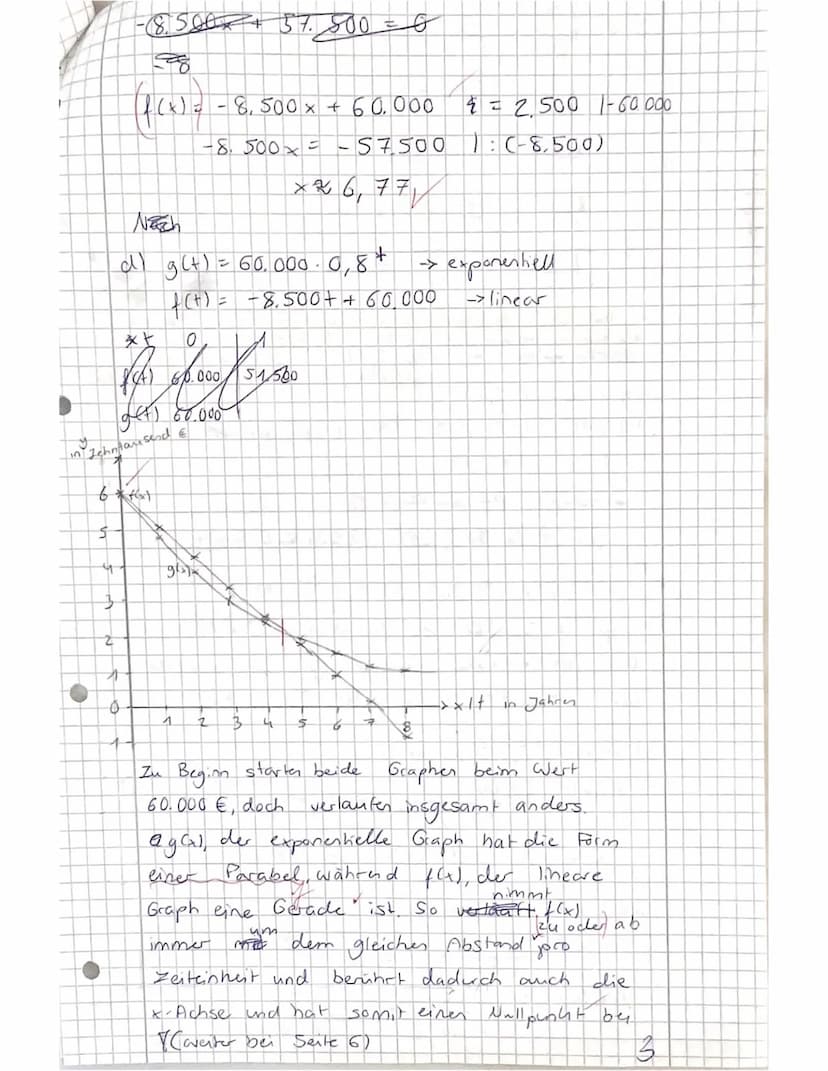 -8.500x + 57.500 = 0
-8
f(x) = -8.500x + 60.000 = 2.500 |-60.000
-8.500x = -57.500 |:(-8.500)
x ≈ 6,77
Nach
d) g(t) = 60.000 · 0,8^t → exponentiell
f(t) = -8.500t + 60.000 → linear
x t 0 1
f(t) 60.000 51.500
g(t) 60.000
y
in Zehntausend €
6 f(x)
5
4 g(x)
3
2
1
0 x/t in Jahren
1 2 3 4 5 6 7 8
1
Zu Beginn starten beide Graphen beim Wert
60.000 €, doch verlaufen insgesamt anders.
g(x), der exponentielle Graph hat die Form
einer Parabel, während f(x), der lineare
Graph eine Gerade ist. So verläuft nimmt f(x)
immer um dem gleichen Abstand pro zu oder ab
Zeiteinheit und berührt dadurch auch die
x-Achse und hat somit einen Nullpunkt bei
(weiter bei Seite 6)
3